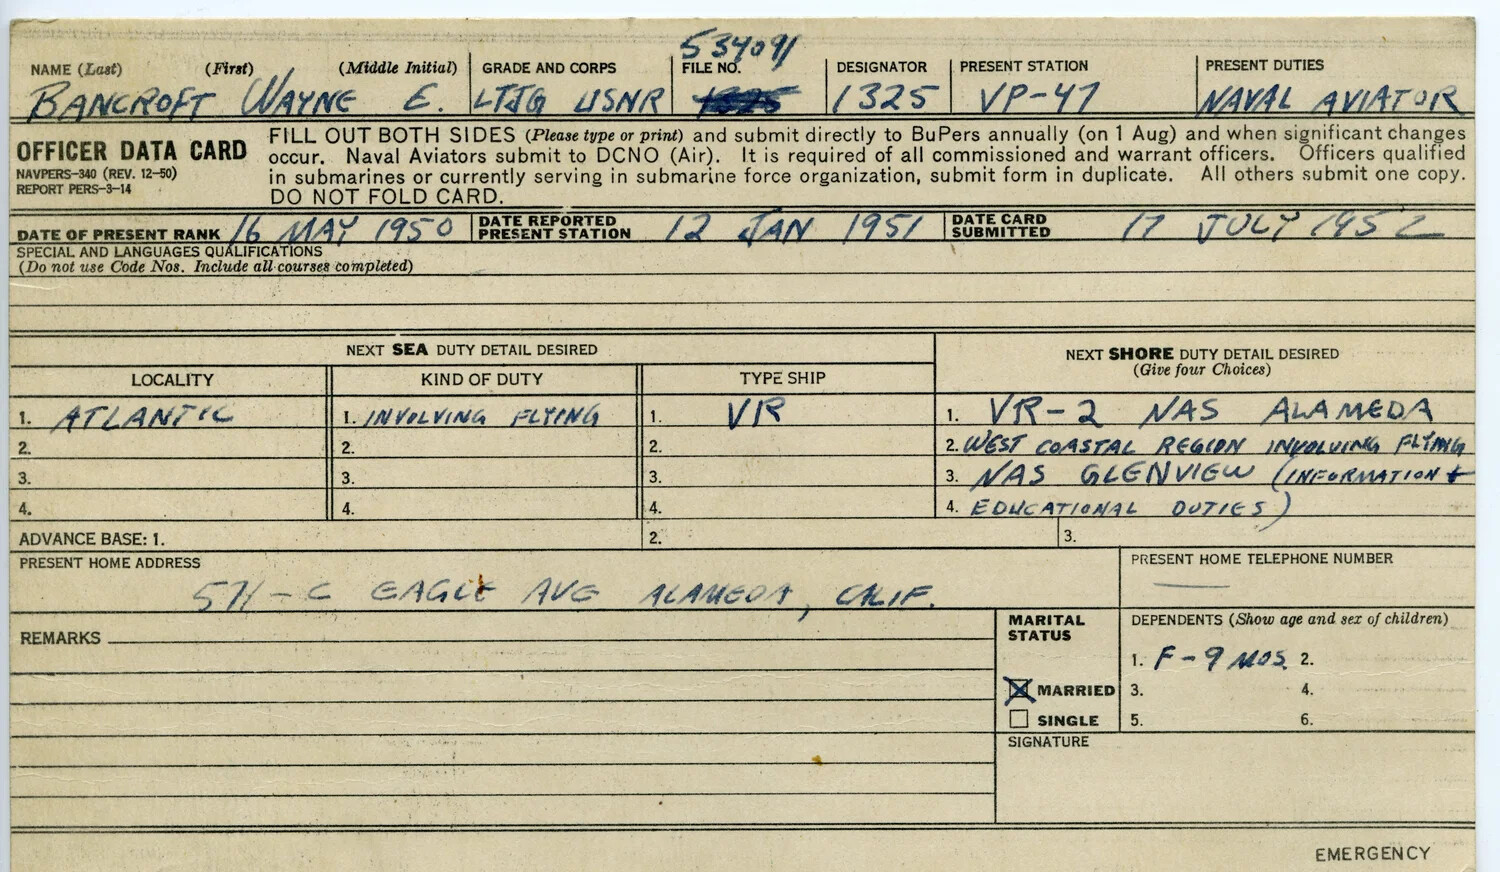 534091
NAME (Last) (First) (Middle Initial) GRADE AND CORPS FILE NO. DESIGNATOR PRESENT STATION PRESENT DUTIES
BANCROFT WAYNE E. LTJG USNR 1325 1325 VP-47 NAVAL AVIATOR
OFFICER DATA CARD
NAVPERS-340 (REV. 12-50)
REPORT PERS-3-14
FILL OUT BOTH SIDES (Please type or print) and submit directly to BuPers annually (on 1 Aug) and when significant changes
occur. Naval Aviators submit to DCNO (Air). It is required of all commissioned and warrant officers. Officers qualified
in submarines or currently serving in submarine force organization, submit form in duplicate. All others submit one copy.
DO NOT FOLD CARD.
DATE OF PRESENT RANK 16 MAY 1950 DATE REPORTED PRESENT STATION 12 JAN 1951 DATE CARD SUBMITTED 17 JULY 1952
SPECIAL AND LANGUAGES QUALIFICATIONS
(Do not use Code Nos. Include all courses completed)
NEXT SEA DUTY DETAIL DESIRED
NEXT SHORE DUTY DETAIL DESIRED
(Give four Choices)
LOCALITY KIND OF DUTY TYPE SHIP
1. ATLANTIC 1. INVOLVING FLYING 1. VR 1. VR-2 NAS ALAMEDA
2. 2. 2. 2. WEST COASTAL REGION INVOLVING FLYING
3. 3. 3. 3. NAS GLENVIEW (INFORMATION +
4. 4. 4. 4. EDUCATIONAL DUTIES)
ADVANCE BASE: 1. 2. 3.
PRESENT HOME ADDRESS PRESENT HOME TELEPHONE NUMBER
571-C EAGLE AVE ALAMEDA, CALIF. —
REMARKS
MARITAL STATUS
DEPENDENTS (Show age and sex of children)
1. F-9 MOS. 2.
MARRIED 3. 4.
SINGLE 5. 6.
SIGNATURE
EMERGENCY